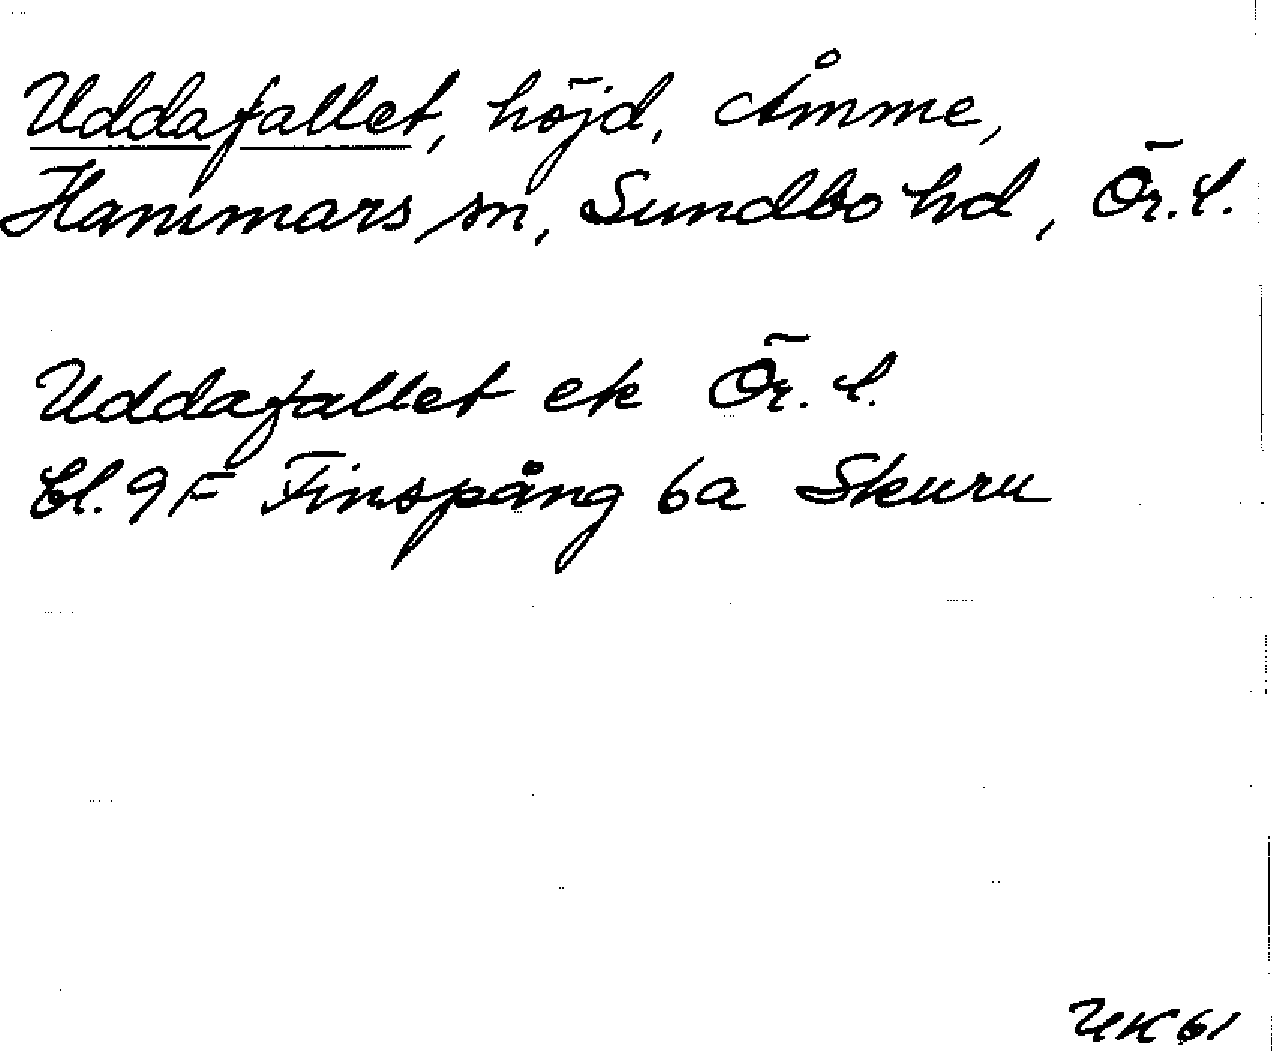 Uddafallet, höjd, Åmme,
Hammars sn, Sundbo hd, Ör. l.
Uddafallet ek Ör. l.
bl. 9F Finspång 6a Skuru
UK 61